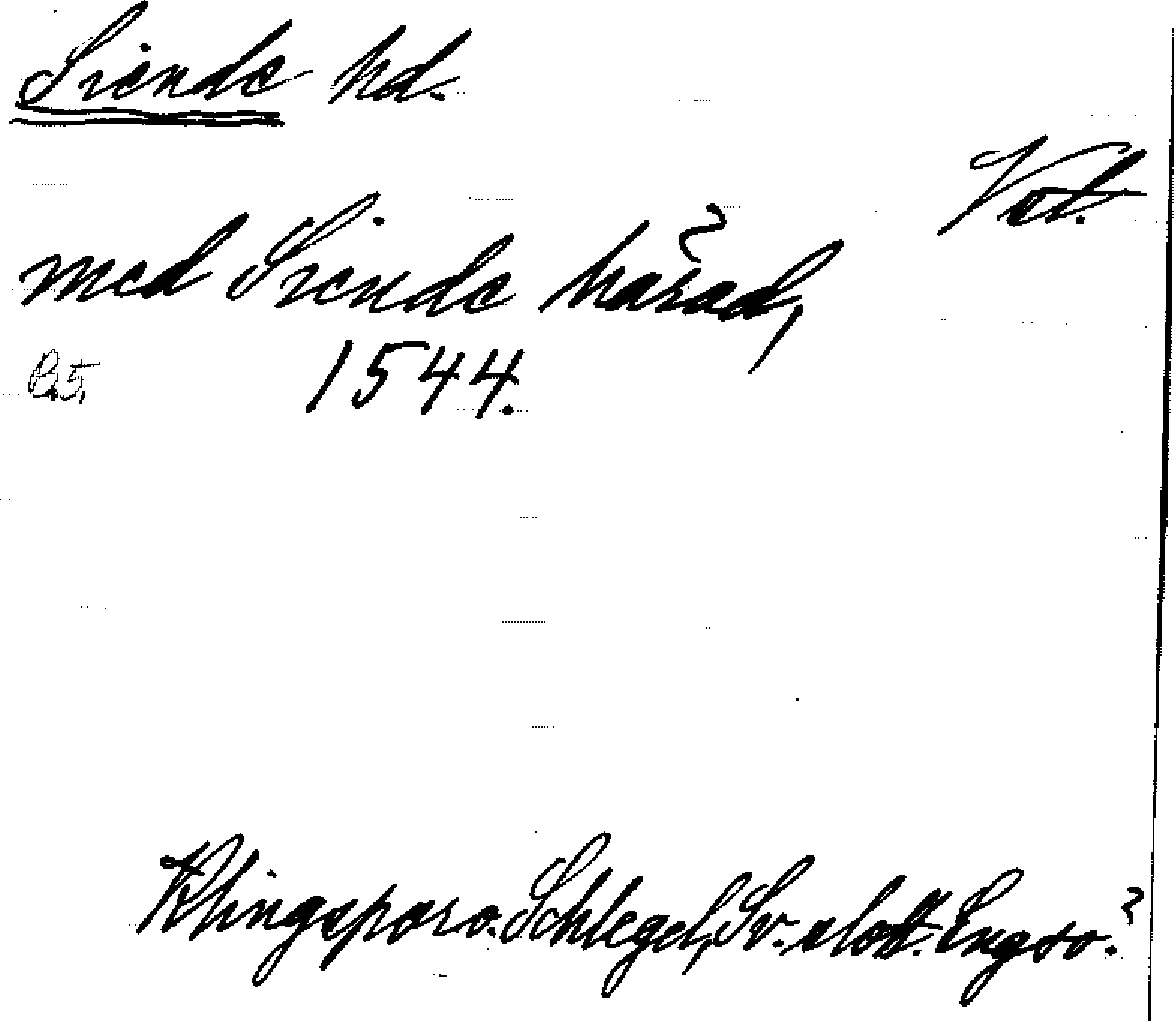 Siende hd.
Vstl.
med Siende härad,
1544.
Klingspor o. Schlegel, Sv. slott. Engsö.